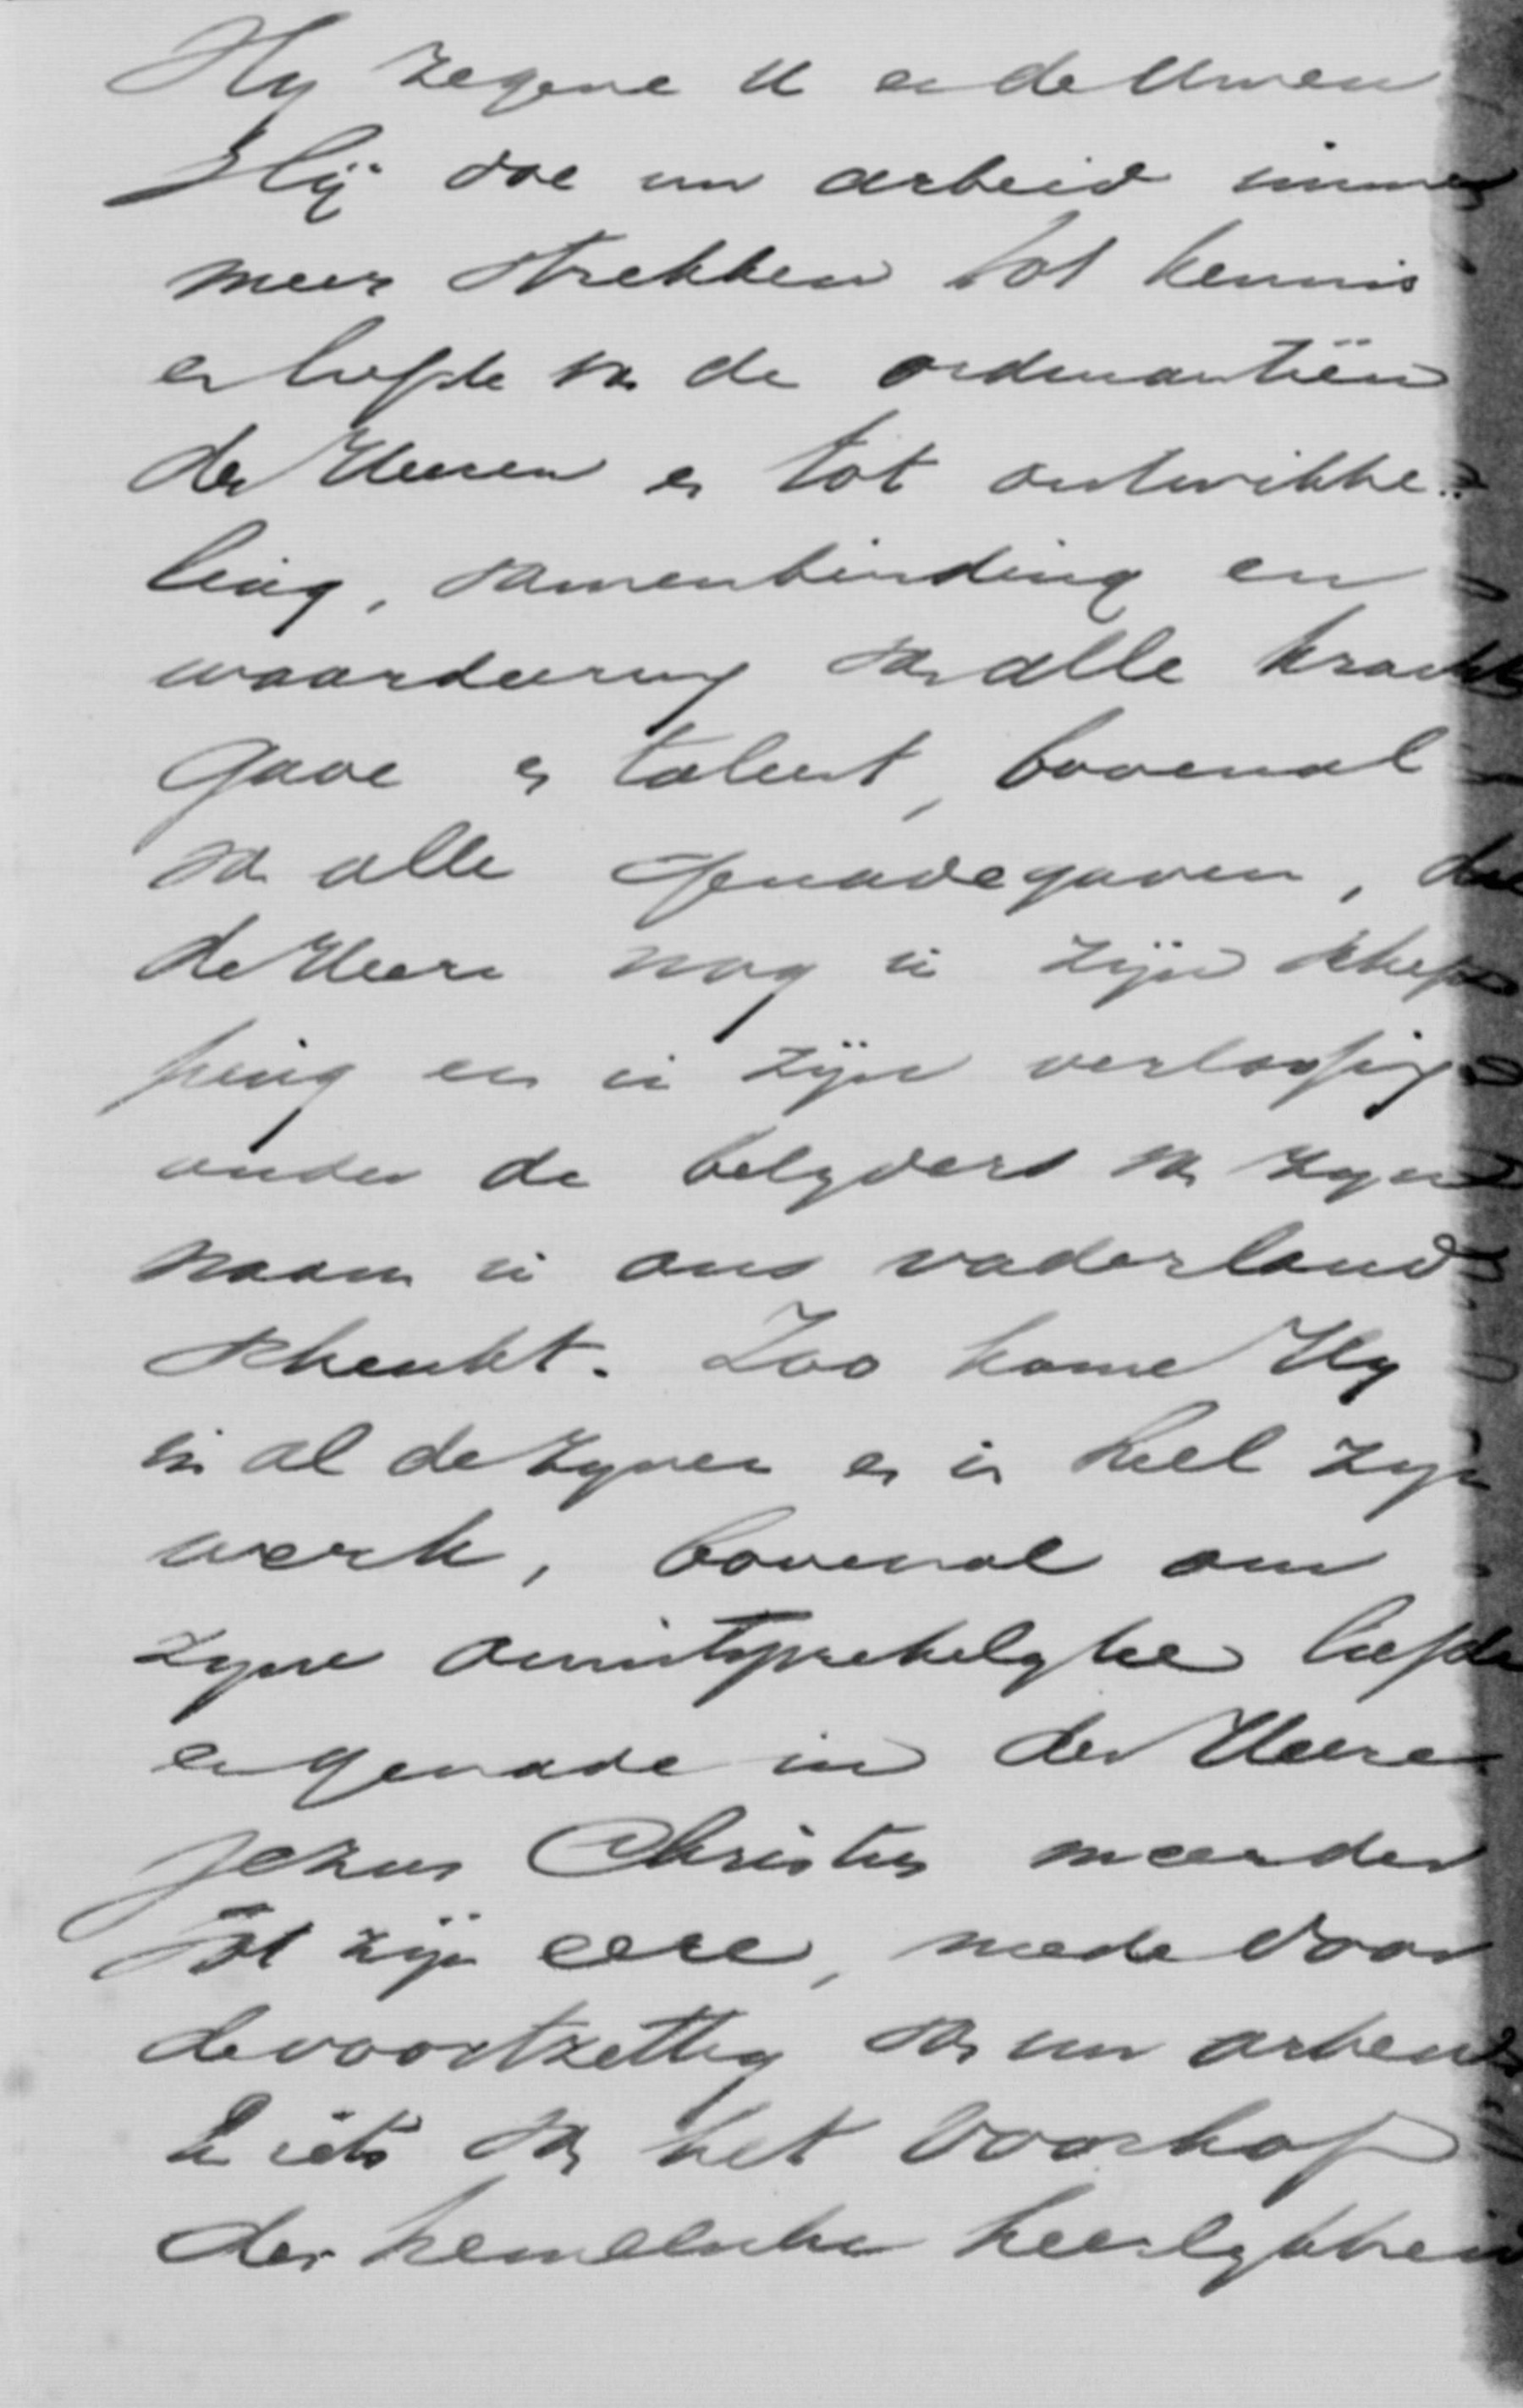 Hy zegene U en de Uwen
Hij doe uw arbeid immer
meer strekken tot kennis
en liefde van de ordinantiën
des Heeren en tot ontwikke-
ling, samenbinding en
waardeering van alle kracht
gave en talent, bovenal
van alle genadegaven, die
de Heere nog in zijn schep-
ping en in zijn verlossing
onder de belyders van zyn
naam in ons vaderland
schenkt. Zoo kome Hy
in al de zynen en in heel zyn
werk, bovenal om
zyne onuitsprekelyke liefde
en genade in den Heere
Jezus Christus meerder
tot zijn eere, mede door
de voortzetting van uw arbeid
En iets van het voorhof
der hemelsche heerlykheid